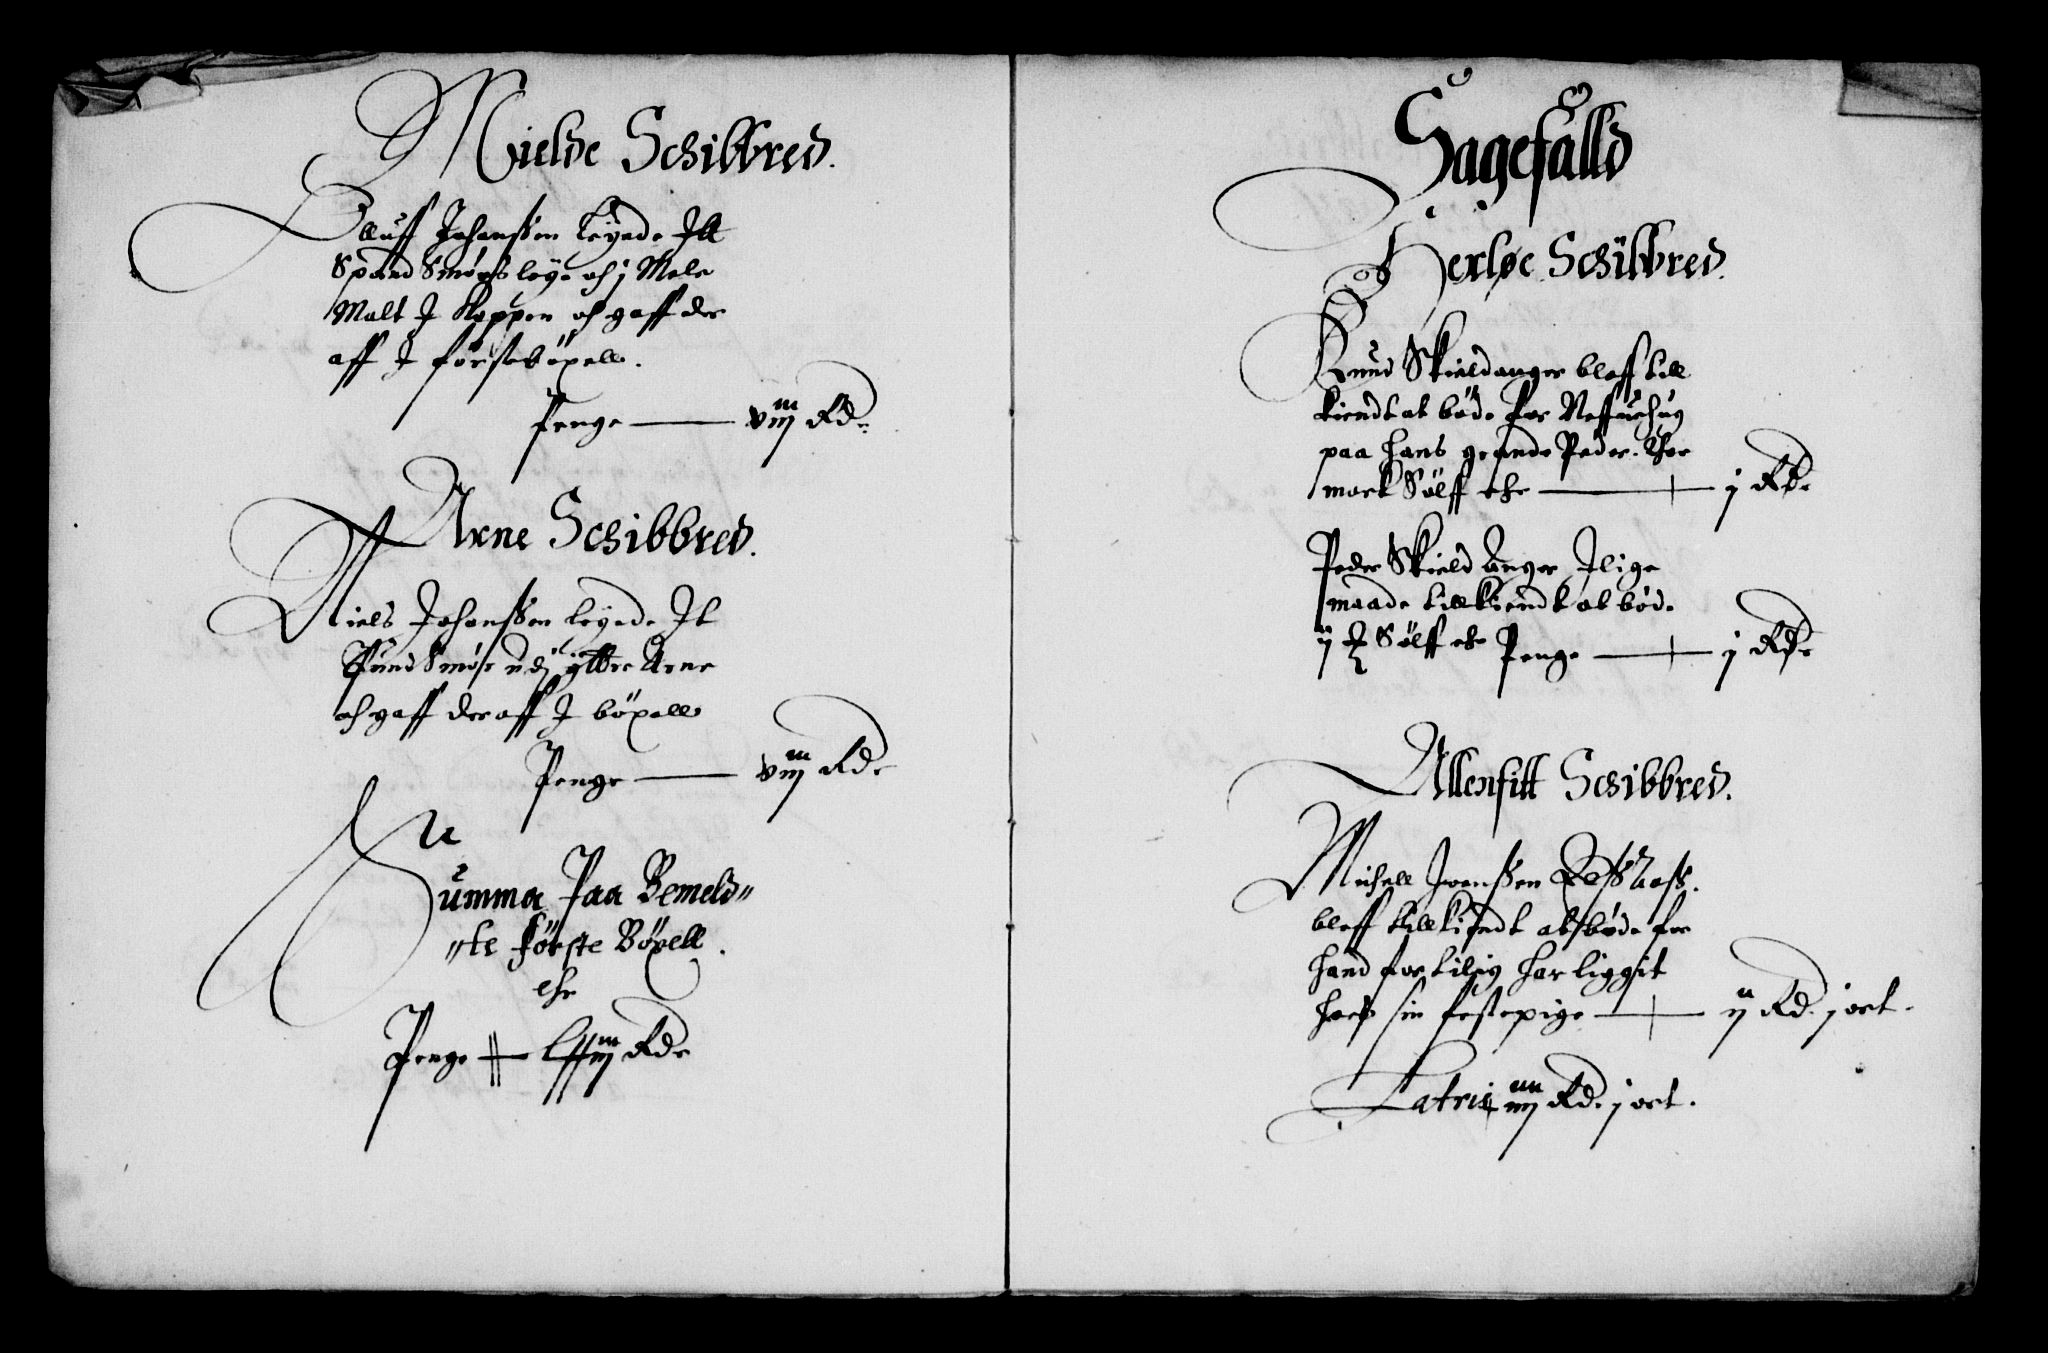 Mielde Schibbred.
Olluff Johanßen leyede Itt
Spand Smørs leye och j Mele
Malt I Koppen och gaff der
aff I førstebøxell.
Penge —— viij Rdr
Arne Schibbred.
Niels Johanßen leyede It
Pund Smør udj ÿttre Arne
och gaff der aff I bøxell
Penge —— viij Rdr
Summa Paa Bemeld„
„te Første Bøxell.
ehr
Penge Rdr
Sagefald
Herløe Schibbred.
Knud Skieldanger bleff till
kiendt at bøde for Neffuehug
paa hans grande Peder. Thre
mark Sølff ehr —— j Rdr
Peder Skield Anger I lige
maade tillkiendt at bøde
ij Sølff ehr Penge —— j Rdr
Allenfitt Schibbred.
Michell Iwerßen
bleff tillkiendt at bøde for
hand for tilig har liggit
hoes sin festepige —— ij Rd. j ort.
Latris iiij Rd. j ort.